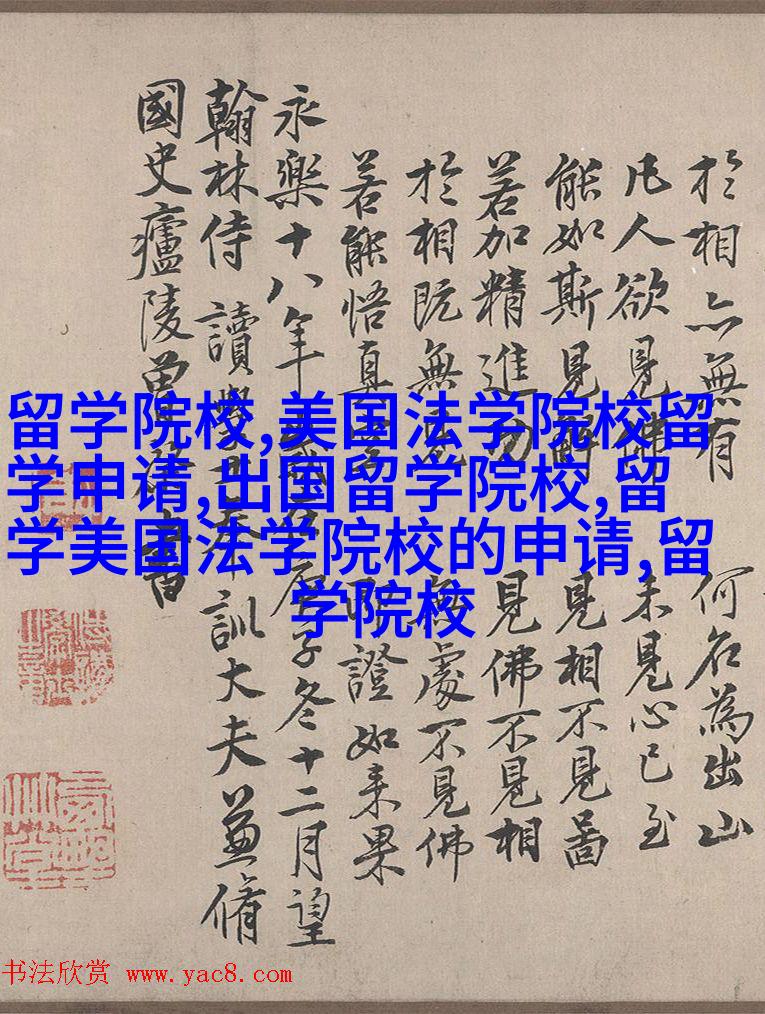 於相亦無有 何名為出山
凡人欲見佛 未見心已至
能如斯見解 見相不見啚
若加精進力 見佛不見相
於相既無見 無處不見佛
若能悟真空 即證如来果
永樂十八年歲在庚子冬十二月望
翰林侍讀學士奉訓大夫兼脩
國史廬陵曾棨書
留学院校,美国法学院校留
学申请,出国留学院校,留
学美国法学院校的申请,留
学院校
书法欣赏 www.yac8.com